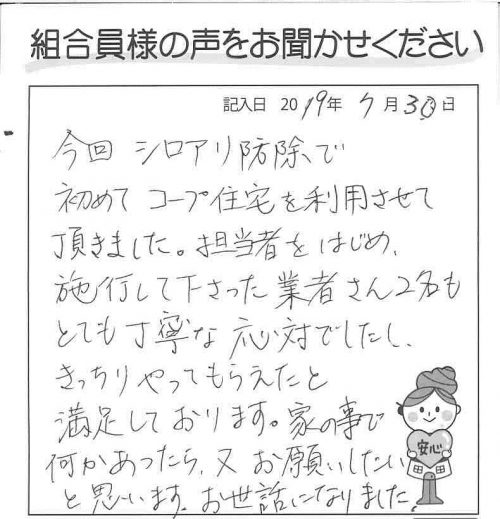 組合員様の声をお聞かせください
記入日 2019年 7月30日
今回 シロアリ防除で
初めて コープ住宅を利用させて
頂きました。担当者をはじめ、
施行して下さった業者さん2名も
とても丁寧な応対でしたし、
きっちりやってもらえたと
満足しております。家の事で
何かあったら、又 お願いしたい
と思います。お世話になりました。
安心